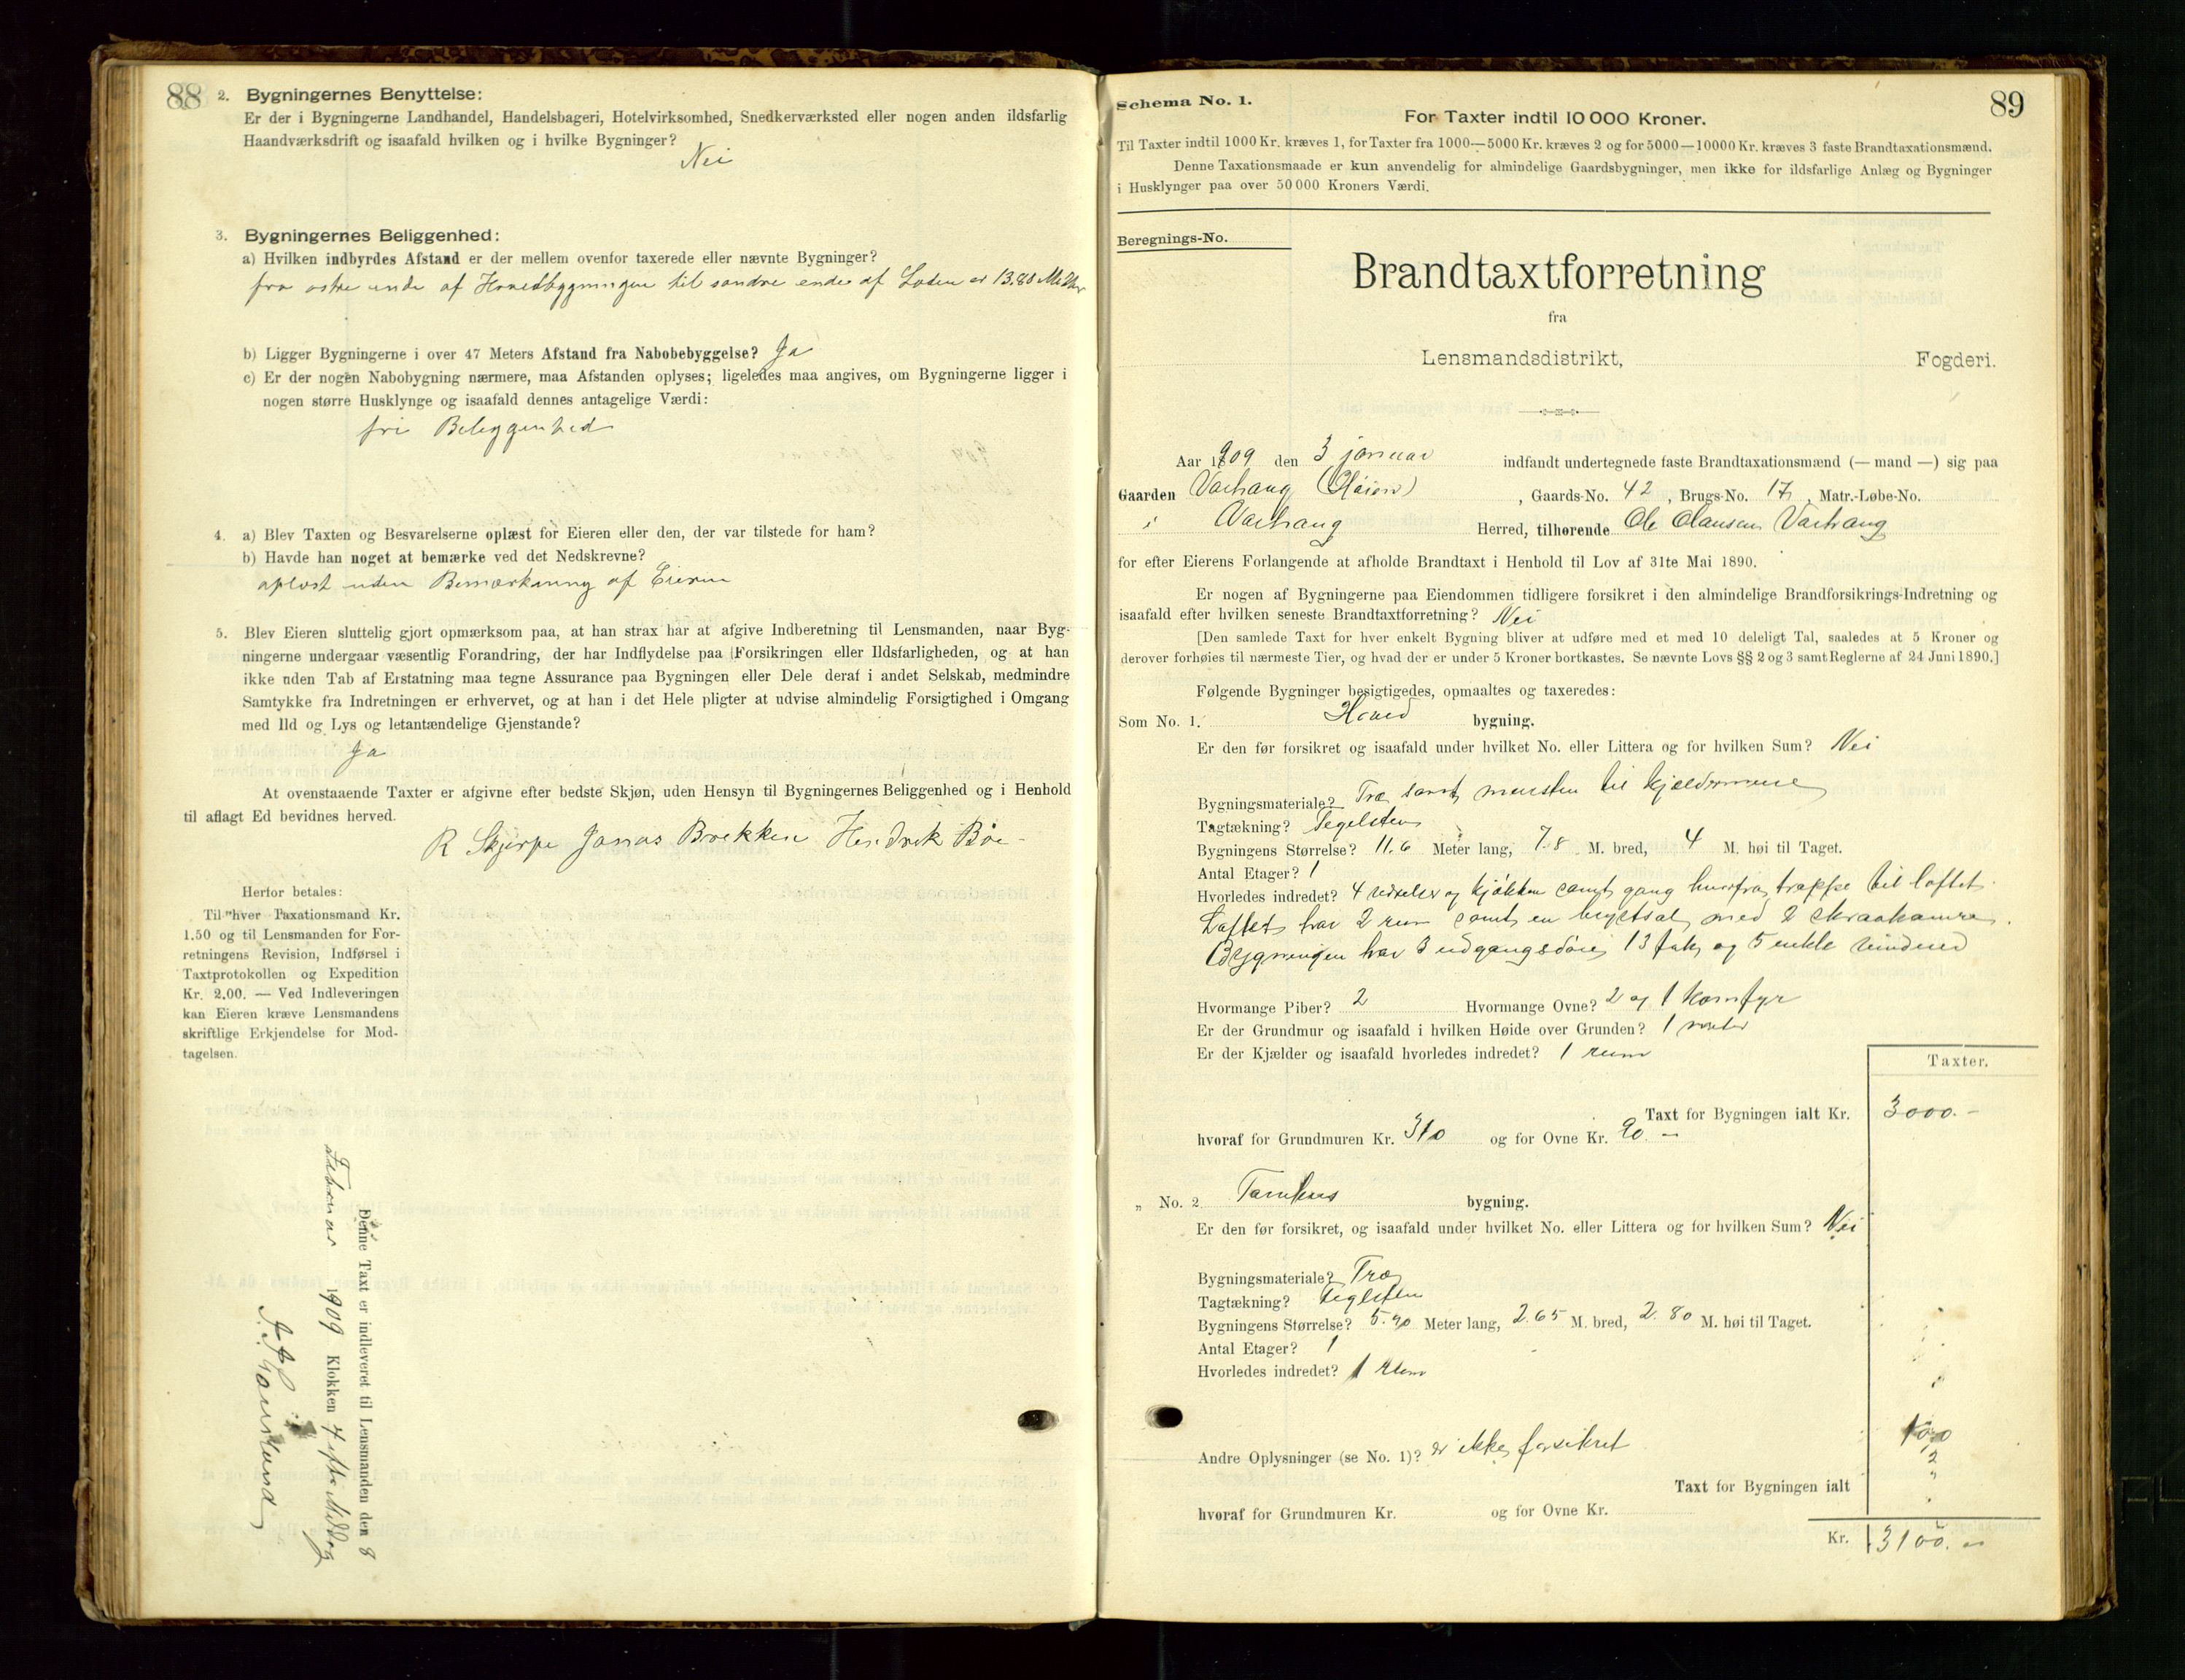 88
2. Bygningernes Benyttelse:
Er der i Bygningerne Landhandel, Handelsbageri, Hotelvirksomhed, Snedkerværksted eller nogen anden ildsfarlig
Haandværksdrift og isaafald hvilken og i hvilke Bygninger?
Nei
3. Bygningernes Beliggenhed:
a) Hvilken indbyrdes Afstand er der mellem ovenfor taxerede eller nævnte Bygninger?
fra østre ende af Hovedbygningen til søndre ende af Laden er 13.80 Meter
b) Ligger Bygningerne i over 47 Meters Afstand fra Nabobebyggelse? Ja
c) Er der nogen Nabobygning nærmere, maa Afstanden oplyses; ligeledes maa angives, om Bygningerne ligger i
nogen større Husklynge og isaafald dennes antagelige Værdi:
fri Beliggenhed
4. a) Blev Taxten og Besvarelserne oplæst for Eieren eller den, der var tilstede for ham?
b) Havde han noget at bemærke ved det Nedskrevne?
oplæst uden Bemærkning af Eieren
5. Blev Eieren sluttelig gjort opmærksom paa, at han strax har at afgive Indberetning til Lensmanden, naar Byg-
ningerne undergaar væsentlig Forandring, der har Indflydelse paa Forsikringen eller Ildsfarligheden, og at han
ikke uden Tab af Erstatning maa tegne Assurance paa Bygningen eller Dele deraf i andet Selskab, medmindre
Samtykke fra Indretningen er erhvervet, og at han i det Hele pligter at udvise almindelig Forsigtighed i Omgang
med Ild og Lys og letantændelige Gjenstande?
Ja
At ovenstaaende Taxter er afgivne efter bedste Skjøn, uden Hensyn til Bygningernes Beliggenhed og i Henhold
til aflagt Ed bevidnes herved.
R Skjerpe Jonas Brekken Hendrik Bøe
Herfor betales:
Til hver Taxationsmand Kr.
1.50 og til Lensmanden for For-
retningens Revision, Indførsel i
Taxtprotokollen og Expedition
Kr. 2.00. — Ved Indleveringen
kan Eieren kræve Lensmandens
skriftlige Erkjendelse for Mod-
tagelsen.
Denne Taxt er indleveret til Lensmanden den 8
Februar 1909 Klokken 4 efter Middag
89
Schema No. 1.
For Taxter indtil 10 000 Kroner.
Til Taxter indtil 1000 Kr. kræves 1, for Taxter fra 1000—5000 Kr. kræves 2 og for 5000—10000 Kr. kræves 3 faste Brandtaxationsmænd.
Denne Taxationsmaade er kun anvendelig for almindelige Gaardsbygninger, men ikke for ildsfarlige Anlæg og Bygninger
i Husklynger paa over 50 000 Kroners Værdi.
Beregnings-No.
Brandtaxtforretning
fra
Lensmandsdistrikt, Fogderi.
Aar 1909 den 3 januar indfandt undertegnede faste Brandtaxationsmænd (— mand —) sig paa
Gaarden Varhaug, Gaards-No. 42, Brugs-No. 17, Matr.-Løbe-No.
i Varhaug Herred, tilhørende Ole Olausen Varhaug
for efter Eierens Forlangende at afholde Brandtaxt i Henhold til Lov af 31te Mai 1890.
Er nogen af Bygningerne paa Eiendommen tidligere forsikret i den almindelige Brandforsikrings-Indretning og
isaafald efter hvilken seneste Brandtaxtforretning? Nei
[Den samlede Taxt for hver enkelt Bygning bliver at udføre med et med 10 deleligt Tal, saaledes at 5 Kroner og
derover forhøies til nærmeste Tier, og hvad der er under 5 Kroner bortkastes. Se nævnte Lovs §§ 2 og 3 samt Reglerne af 24 Juni 1890.]
Følgende Bygninger besigtigedes, opmaaltes og taxeredes:
Som No. 1. Hoved bygning.
Er den før forsikret og isaafald under hvilket No. eller Littera og for hvilken Sum? Nei
Bygningsmateriale? Træ samt mursten til kjeldermure
Tagtækning? Tegelsten
Bygningens Størrelse? 11.6 Meter lang, 7.8 M. bred, 4 M. høi til Taget.
Antal Etager? 1
Hvorledes indredet? 4 værelser og kjøkken samt gang hvorfra trappe til loftet.
Loftet har 2 rum samt en brystsal med 2 skraakamre.
Bygningen har 3 udgangsdøre 13 fuls og 5 enkle vinduer
Hvormange Piber? 2 Hvormange Ovne? 2 og 1 komfyr
Er der Grundmur og isaafald i hvilken Høide over Grunden? 1 meter
Er der Kjælder og isaafald hvorledes indredet? 1 rum
Taxter.
Taxt for Bygningen ialt Kr. 3000.-
hvoraf for Grundmuren Kr. 310 og for Ovne Kr. 90.-
„ No. 2 bygning.
Er den før forsikret, og isaafald under hvilket No. eller Littera og for hvilken Sum? Nei
Bygningsmateriale? Træ
Tagtækning? Teglsten
Bygningens Størrelse? 5.90 Meter lang, 2.65 M. bred, 2.80 M. høi til Taget.
Antal Etager? 1
Hvorledes indredet? 1 rum
100
Andre Oplysninger (se No. 1)? er ikke forsikret
Taxt for Bygningen ialt
hvoraf for Grundmuren Kr. og for Ovne Kr.
Kr. 3100.-